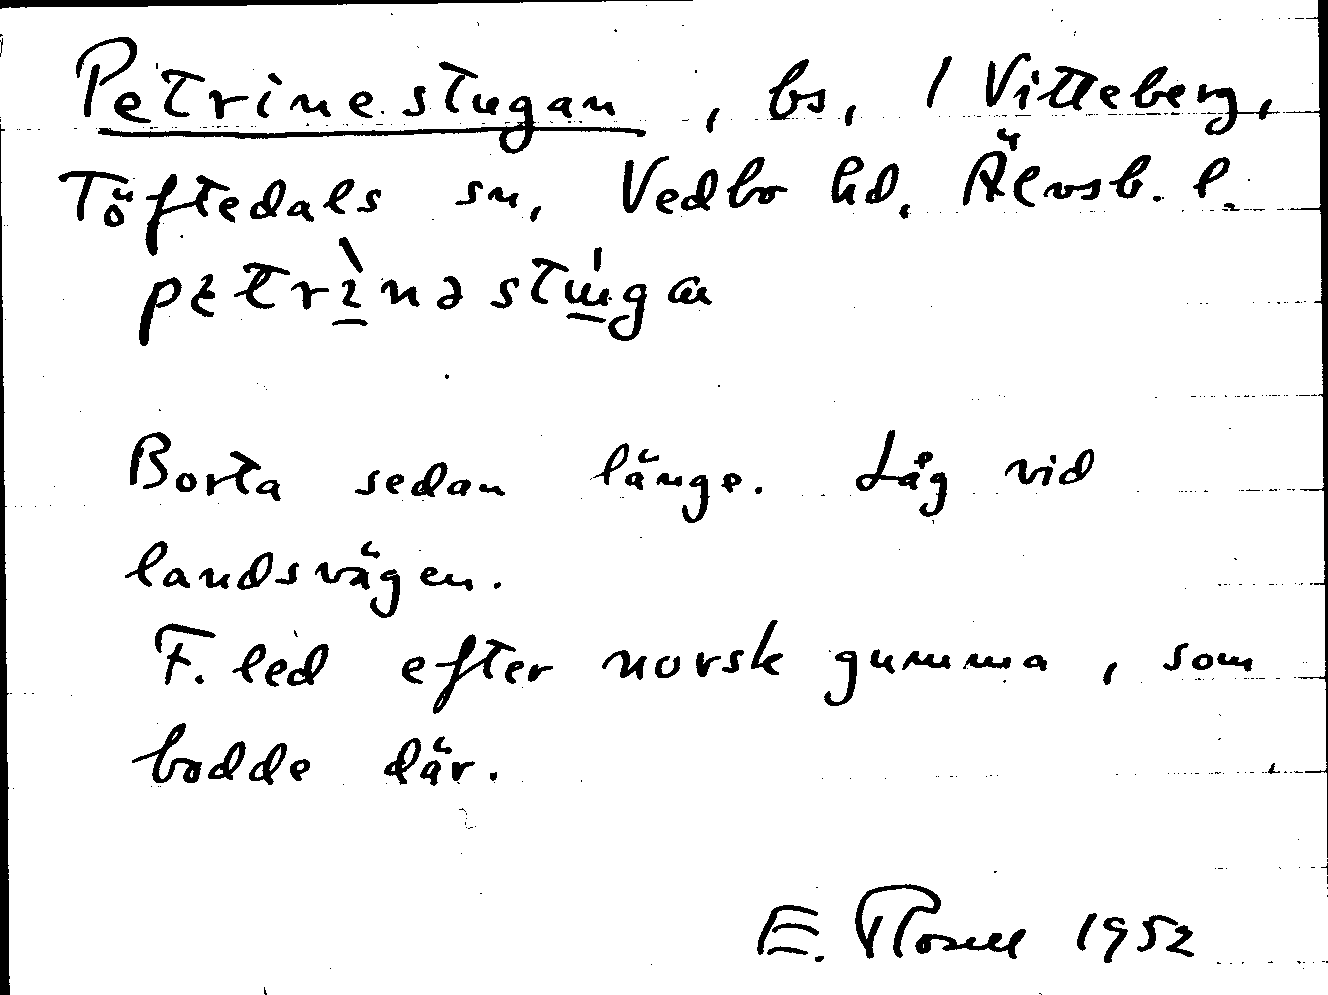 Petrinestugan, bs, 1 Vitteberg,
Töftedals sn, Vedbo hd, Älvsb. l.
petrìnəstúgan
Borta sedan länge. Låg vid
landsvägen.
F. led efter norsk gumma, som
bodde där.
E. Rosell 1952